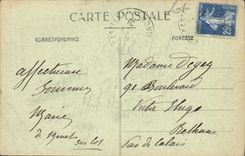 CARTE POSTALE
CORRESPONDANCE
ADRESSE
affectueux
Souvenirs
Marie
Madame Degay
91 Boulevard
Victor Hugo
Béthune
Pas de Calais
25